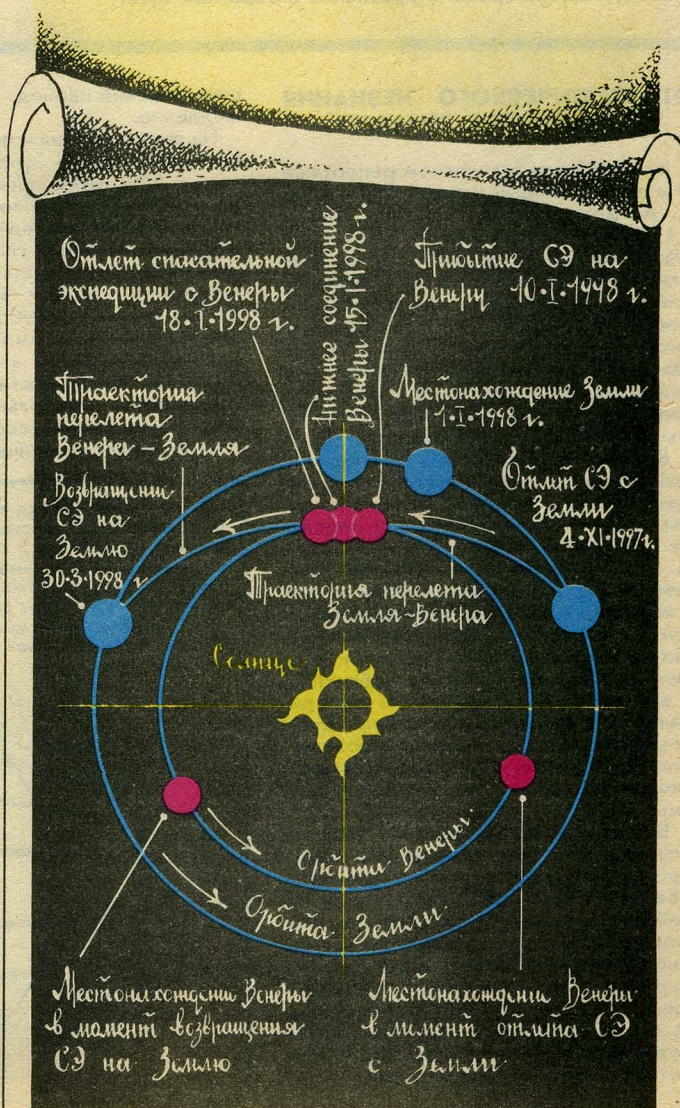 Отлет спасательной
экспедиции с Венеры
18·I·1998 г.
Нижнее соединение
Венеры 15·I·1998 г.
Прибытие СЭ на
Венеру 10·I·1998 г.
Траектория
перелета
Венера – Земля
Местонахождение Земли
1·I·1998 г.
Возвращение
СЭ на
Землю
30·3·1998 г.
Отлет СЭ с
Земли
4·XI·1997г.
Траектория перелета
Земля–Венера
Солнце
Орбита Венеры
Орбита Земли
Местонахождение Венеры
в момент возвращения
СЭ на Землю
Местонахождение Венеры
в момент отлета СЭ
с Земли